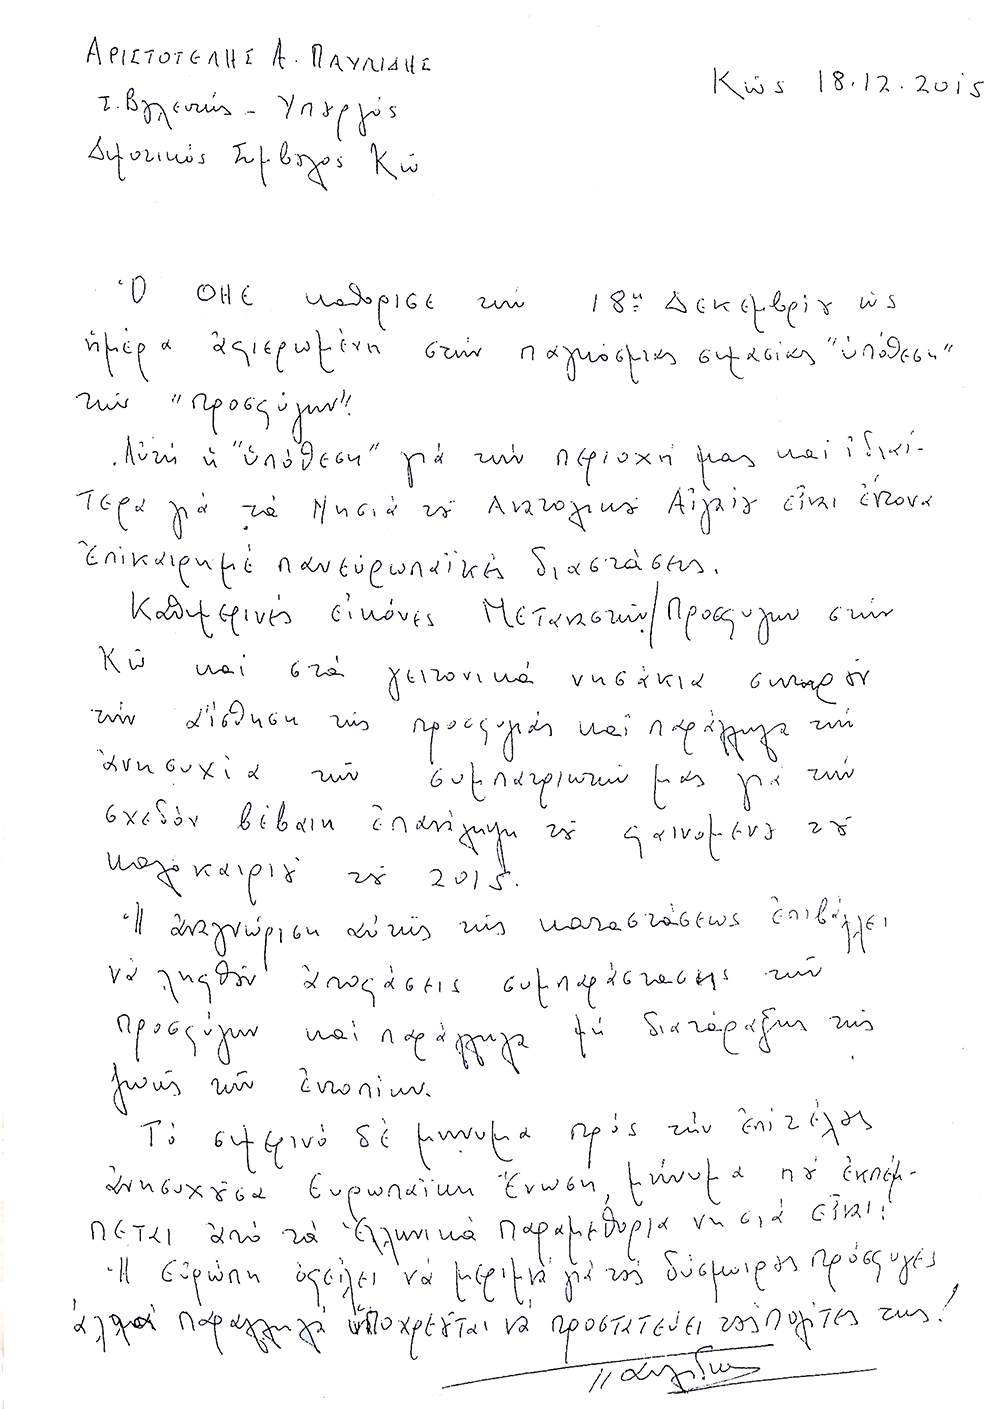 ΑΡΙΣΤΟΤΕΛΗΣ Α. ΠΑΥΛΙΔΗΣ
Κῶς 18.12.2015
τ. Βουλευτής - Υπουργός
Δημοτικός Σύμβουλος Κῶ
Ὁ ΟΗΕ καθόρισε τήν 18ην Δεκεμβρίου ὡς
ἡμέρα ἀφιερωμένη στήν παγκόσμιας σημασίας "ὑπόθεση"
τῶν "προσφύγων".
Αὐτή ἡ "ὑπόθεση" γιά τήν περιοχή μας καί ἰδιαί-
τερα γιά τά Νησιά τοῦ Ανατολικού Αἰγαίου εἶναι ἔντονα
ἐπίκαιρη μέ πανευρωπαϊκές διαστάσεις.
Καθημερινές εἰκόνες Μεταναστῶν/Προσφυγων στήν
Κῶ καί στά γειτονικά νησάκια συντηροῦν
τήν αἴσθηση τῆς προσφυγιᾶς καί παράλληλα τήν
ἀνησυχία τῶν συμπατριωτῶν μας γιά τήν
σχεδόν βέβαιη ἐπανάληψη τοῦ φαινομένου τοῦ
καλοκαιριοῦ τοῦ 2015.
Ἡ ἀναγνώριση αὐτῆς τῆς καταστάσεως ἐπιβάλλει
νά ληφθοῦν ἀποφάσεις συμπαράστασης τῶν
προσφύγων καί παράλληλα μή διατάραξης τῆς
ζωῆς τῶν ἐντοπίων.
Τό σημερινό δέ μήνυμα πρός τήν ἐπί τέλους
ἀνησυχοῦσα Ευρωπαϊκη Ἕνωση, μήνυμα πού ἐκπέμ-
πεται ἀπό τά Ἑλληνικά Παραμεθόρια νησιά εἶναι:
Ἡ Εὐρώπη ὀφείλει νά μεριμνᾶ γιά τούς δύσμοιρους πρόσφυγες
ἀλλά παράλληλα ὑποχρεοῦται νά προστατεύει τούς πολίτες της!
Παυλίδης